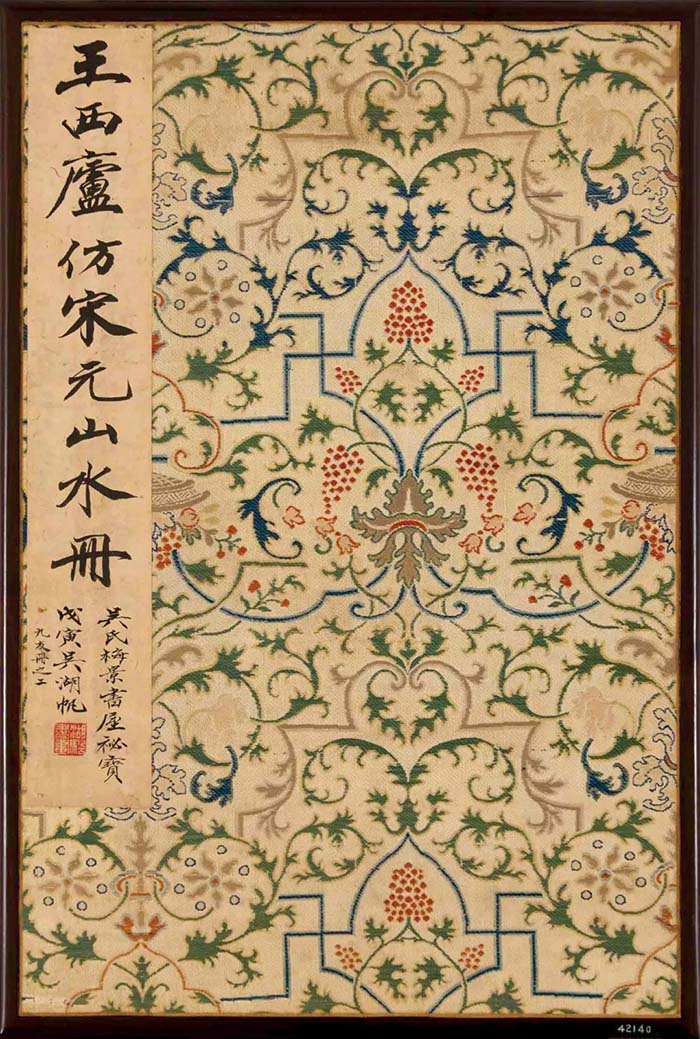 王西廬仿宋元山水冊
吳氏梅景書屋祕寶
戊寅吳湖帆
九友冊之二
42140